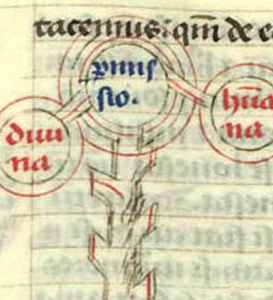 tacemus: qm̄ de e
ꝓmis
sio.
diui
na
hūa
na